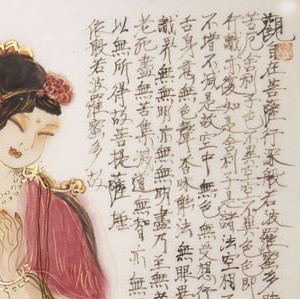 觀自在菩薩行深般若波羅蜜多時
苦厄舍利子色不異空空不異色色即
行識亦復如是舍利子是諸法空相
不增不減是故空中無色無受想行
舌身意無色聲香味觸法無眼界
識界無無明亦無無明盡乃至無老
老死盡無苦集滅道無智亦無
以無所得故菩提薩埵
依般若波羅蜜多故